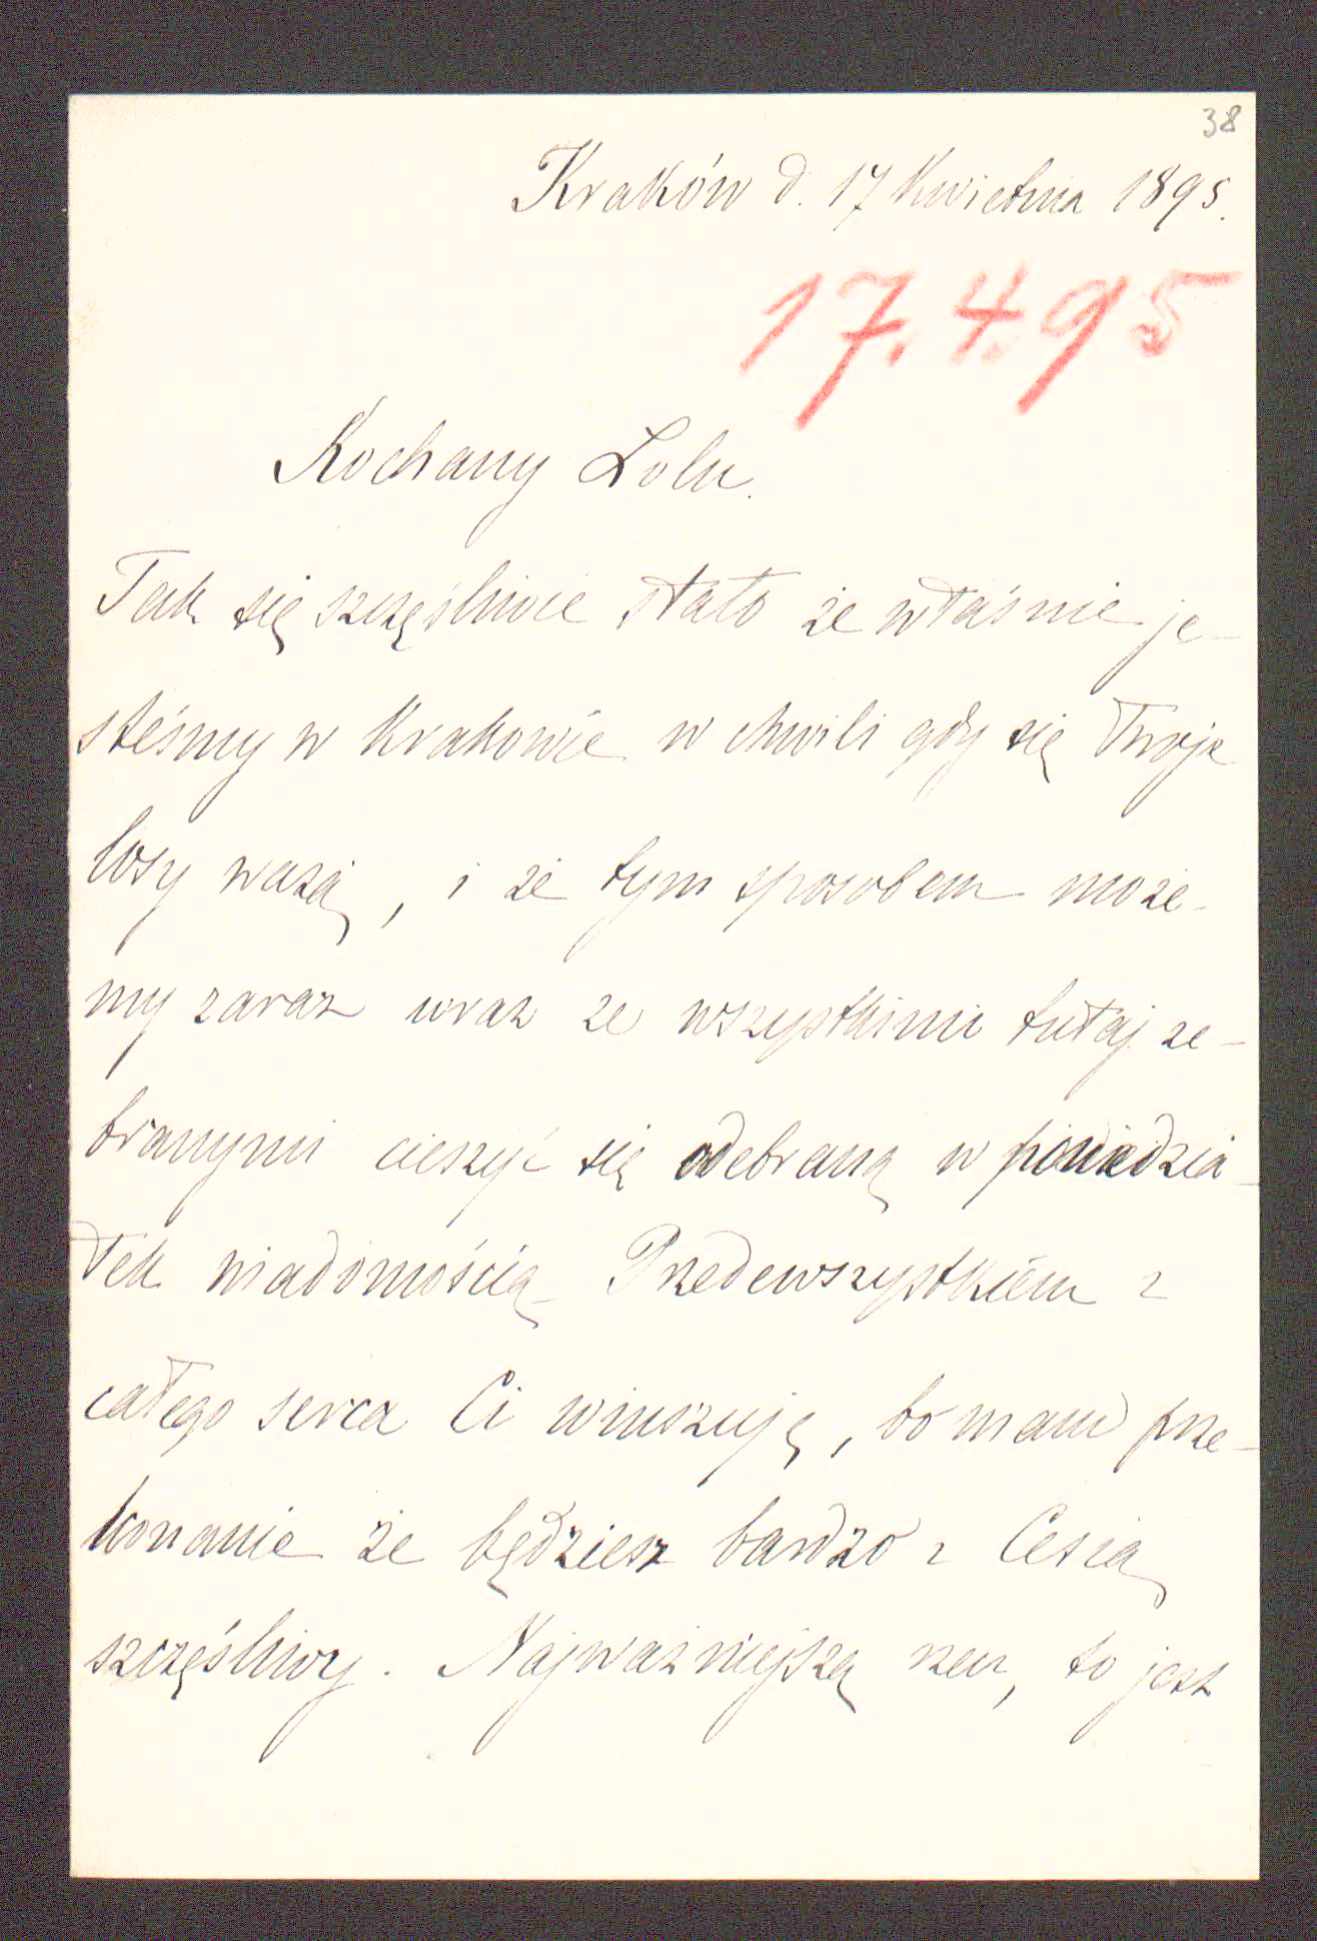 38
Kraków d. 17 Kwietnia 1895.
17.4.95
Kochany Lolu.
Tak się szczęśliwie stało że właśnie je-
steśmy w Krakowie w chwili gdy się Twoje
losy ważą, i że tym sposobem może-
my zaraz wraz ze wszystkimi tutaj ze-
branymi cieszyć się odebraną w poniedzia-
łek wiadomością. Przedewszystkiem z
całego serca Ci winszuję, bo mam prze-
konanie że będziesz bardzo z Cesią
szczęśliwy. Najważniejszą rzecz, to jest